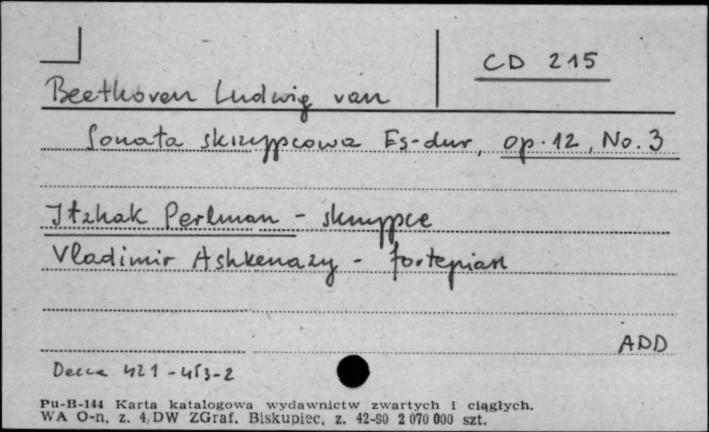 CD 215
Beethoven Ludwig van
Sonata skrzypcowa Es-dur, op. 12, No. 3
Itzhak Perlman - skrzypce
Vladimir Ashkenazy - fortepian
ADD
Decca 421-453-2
Pu-B-144 Karta katalogowa wydawnictw zwartych i ciągłych.
WA O-n, z. 4/DW ZGraf. Biskupiec, z. 42-80 2 070 000 szt.